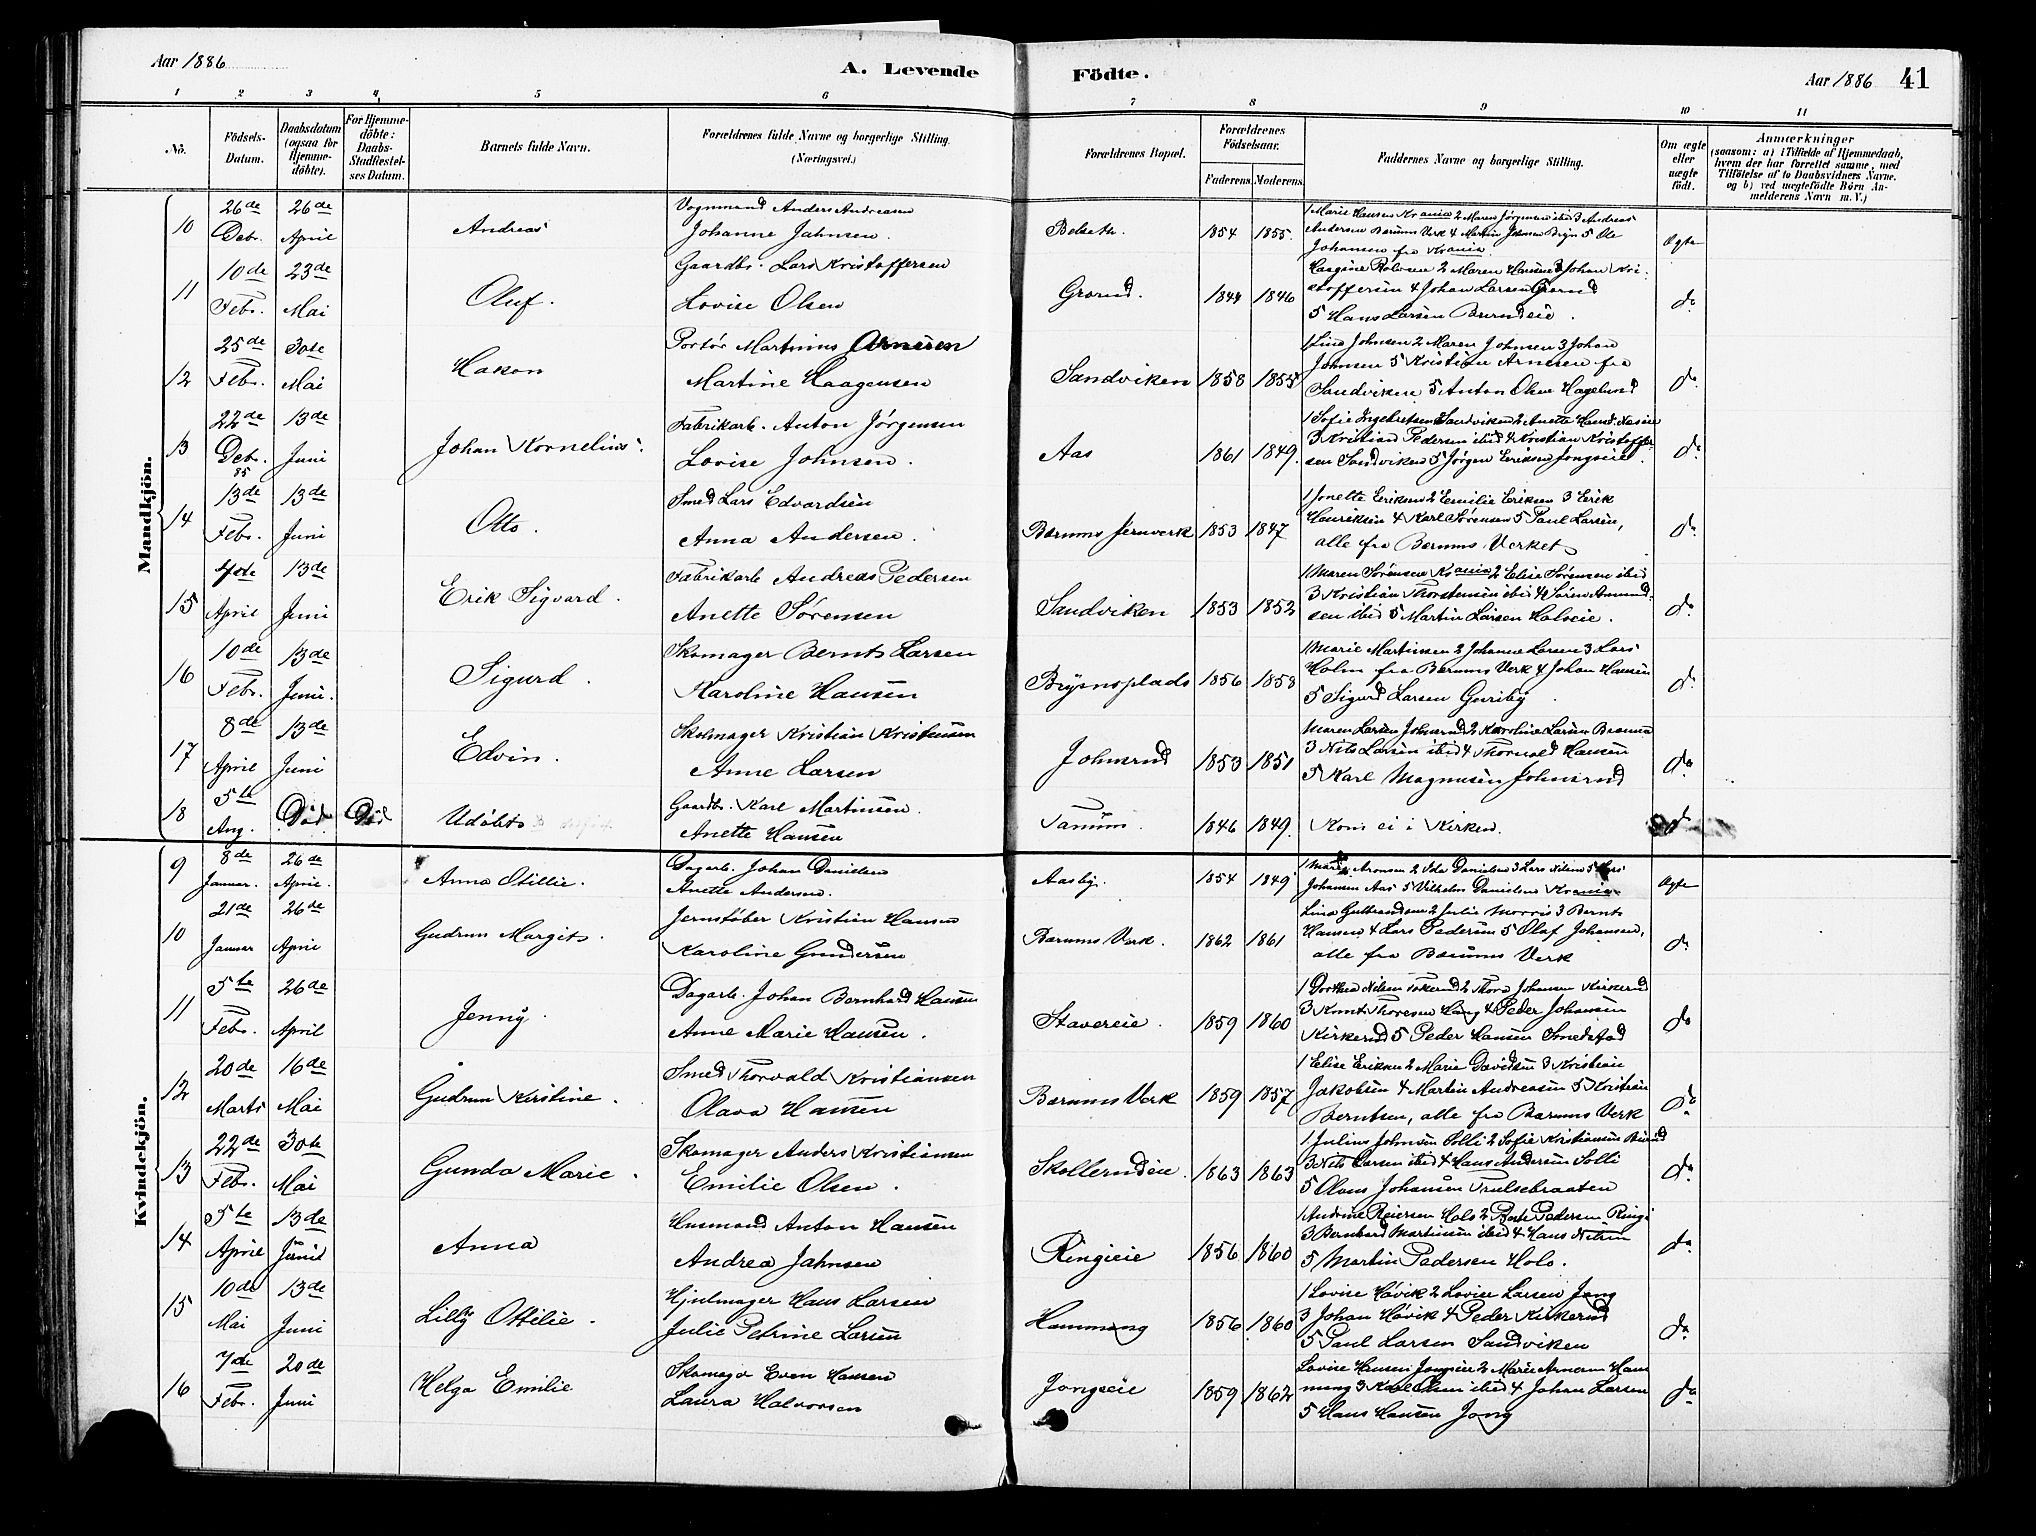 Aar 1886
A. Levende
Födte.
Aar 1886
41
1 2 3 4 5 6 7 8 9 10 11
No.
Födsels-Datum.
Daabsdatum (ogsaa for Hjemme-döbte).
For Hjemme-döbte: Daabs-Stadfæstel-ses Datum.
Barnets fulde Navn.
Forældrenes fulde Navne og borgerlige Stilling. (Næringsvei.)
Forældrenes Bopæl.
Forældrenes Födselsaar.
Faderens. Moderens.
Faddernes Navne og borgerlige Stilling.
Om ægte eller uægte födt.
Anmærkninger
(saasom: a) i Tilfælde af Hjemmedaab, hvem der har forrettet samme, med Tilföielse af to Daabsvidners Navne. og b) ved uægtefödte Börn An-melderens Navn m. V.)
Mandkjön.
10 26de Debr. 26de April Andreas Vognmand Anders Andreasen Johanne Jahnsen. 1854 1855. 1 Marie Hansen Krania 2 Maren Jørgensen ibid 3 Andreas Andersen Bærums Verk 4 Martin Johnsen Bryn 5 Ole Johansen fra Krania. Ægte
11 10de Febr. 23de Mai Oluf. Gaardbr. Lars Kristoffersen Lovise Olsen Grorud. 1844 1846 2 Maren Hansen 3 Johan Kristoffersen 4 Johan Larsen Grorud 5 Hans Larsen do
12 25de Febr. 30te Mai Hakon Portør Martinius Arnesen Martine Haagensen Sandviken 1858 1855 1 Lina Johnsen 2 Maren Johnsen 3 Johan Johnsen 5 Kristian Arnesen fra Sandviken 5 Anton Olsen Hagelund do
13 22de Debr. 85 13de Juni Johan Kornelius. Fabrikarb. Anton Jørgensen Lovise Johnsen. Aas 1861 1849. 1 Sofie Ingebretsen Sandviken 2 Anette Hansd. Næsie 3 Kristian Pedersen ibid 4 Kristian Kristoffersen Sandviken 5 Jørgen Eriksen Jongseie. do
14 13de Febr. 13de Juni Otto. Smed Lars Edvardsen Anna Andersen. Bærums Jernverk 1853 1847 1 Jonette Eriksen 2 Emilie Eriksen 3 Erik Henriksen 4 Karl Sørensen 5 Paul Larsen, alle fra Bærums Verket do
15 4de April 13de Juni Erik Sigvard. Fabrikarb Andreas Pedersen Anette Sørensen Sandviken 1853 1852 1 Maren Sørensen Krania 2 Elise Sørensen ibid 3 Kristian Thorstensen ibid 4 Søren Amundsen ibid 5 Martin Larsen Holseie. do
16 10de Febr. 13de Juni. Sigurd. Skomager Bernt Larsen Karoline Hansen Brynsplads 1856 1858 1 Marie Martinsen 2 Johanne Larsen 3 Lars Holm fra Bærums Verk 4 Johan Hansen 5 Sigurd Larsen Guriby do
17 8de April 13de Juni Edvin. Skomager Kristian Kristiansen Anne Larsen Johnsrud 1853 1851 Maren Larsen Johnsrud 2 Karoline Larsen 3 Nils Larsen ibid 4 Thorvald Hansen 5 Karl Magnusen Johnsrud do
18 5te Aug. Død Død Udøbt Gaardbr. Karl Martinsen. Anette Hansen Tanum 1846 1849. Kom ei i Kirken. do
Kvindekjön.
9 8de Januar. 26de April. Anna Otillie. Dagarb. Johan Danielsen Anette Andersen. Aasby. 1854 1849 1 Aronsen 2 Ida Danielsen 3 Lars Nilsen Johansen Aas 5 Vilhelm Danielsen Krania. Ægte
10 21de Januar 26de April Gudrun Margit. Jernstøber Kristian Hansen Karoline Gundersen Bærums Verk. 1862 1861 Lina Gulbrandsen 2 Julie Morris 3 Bernt Hansen 4 Lars Pedersen 5 Olaf Johansen, alle fra Bærums Verk do
11 5te Febr. 26de April Jenny. Dagarb. Johan Bernhard Hansen Anne Marie Hansen. Stavereie. 1859 1860 1 Dorthea Nilsen 2 Thora Johansen Kirkerud 3 Knut Thoresen Haug 4 Peder Johansen Kirkerud 5 Peder Hansen Smedstad do
12 20de Marts 16de Mai Gudrun Kirstine. Smed Thorvald Kristiansen Olava Hansen Bærums Verk 1859 1857 1 Elise Eriksen 2 Marie Davidsen 3 Kristian Jakobsen 4 Martin Andreasen 5 Kristian Berntsen, alle fra Bærums Verk do
13 22de Febr. 30te Mai Gunda Marie. Skomager Anders Kristiansen Emilie Olsen. Skollerudeie. 1863 1863 1 Julius Johnsen Solli 2 Sofie Kristiansen 3 Nils Larsen ibid 4 Hans Andersen Solli 5 Olaus Johansen Trulsebraaten do
14 5te April 13de Juni Anna Husmand Anton Hansen Andrea Jahnsen Ringieie 1856 1860 1 Andrine Reiersen Hols 2 Pedersen Ringi 3 Bernhard Martinsen ibid 4 Hans Nilsen 5 Martin Pedersen Hols. do
15 10de Mai 13de Juni Lilly Ottilie. Hjulmager Hans Larsen Julie Petrine Larsen Hammang 1856 1860 1 Lovise Høvik 2 Lovise Larsen Jong 3 Johan Høvik 4 Peder Kirkerud 5 Paul Larsen Sandviken do
16 7de Febr. 20de Juni Helga Emilie Skomager Even Hansen Laura Halvorsen Jongseie 1859 1862 Lovise Hansen Jongseie 2 Marie Arnesen Hammang 3 Karl Olsen ibid 4 Johan Larsen 5 Hans Hansen Jong do